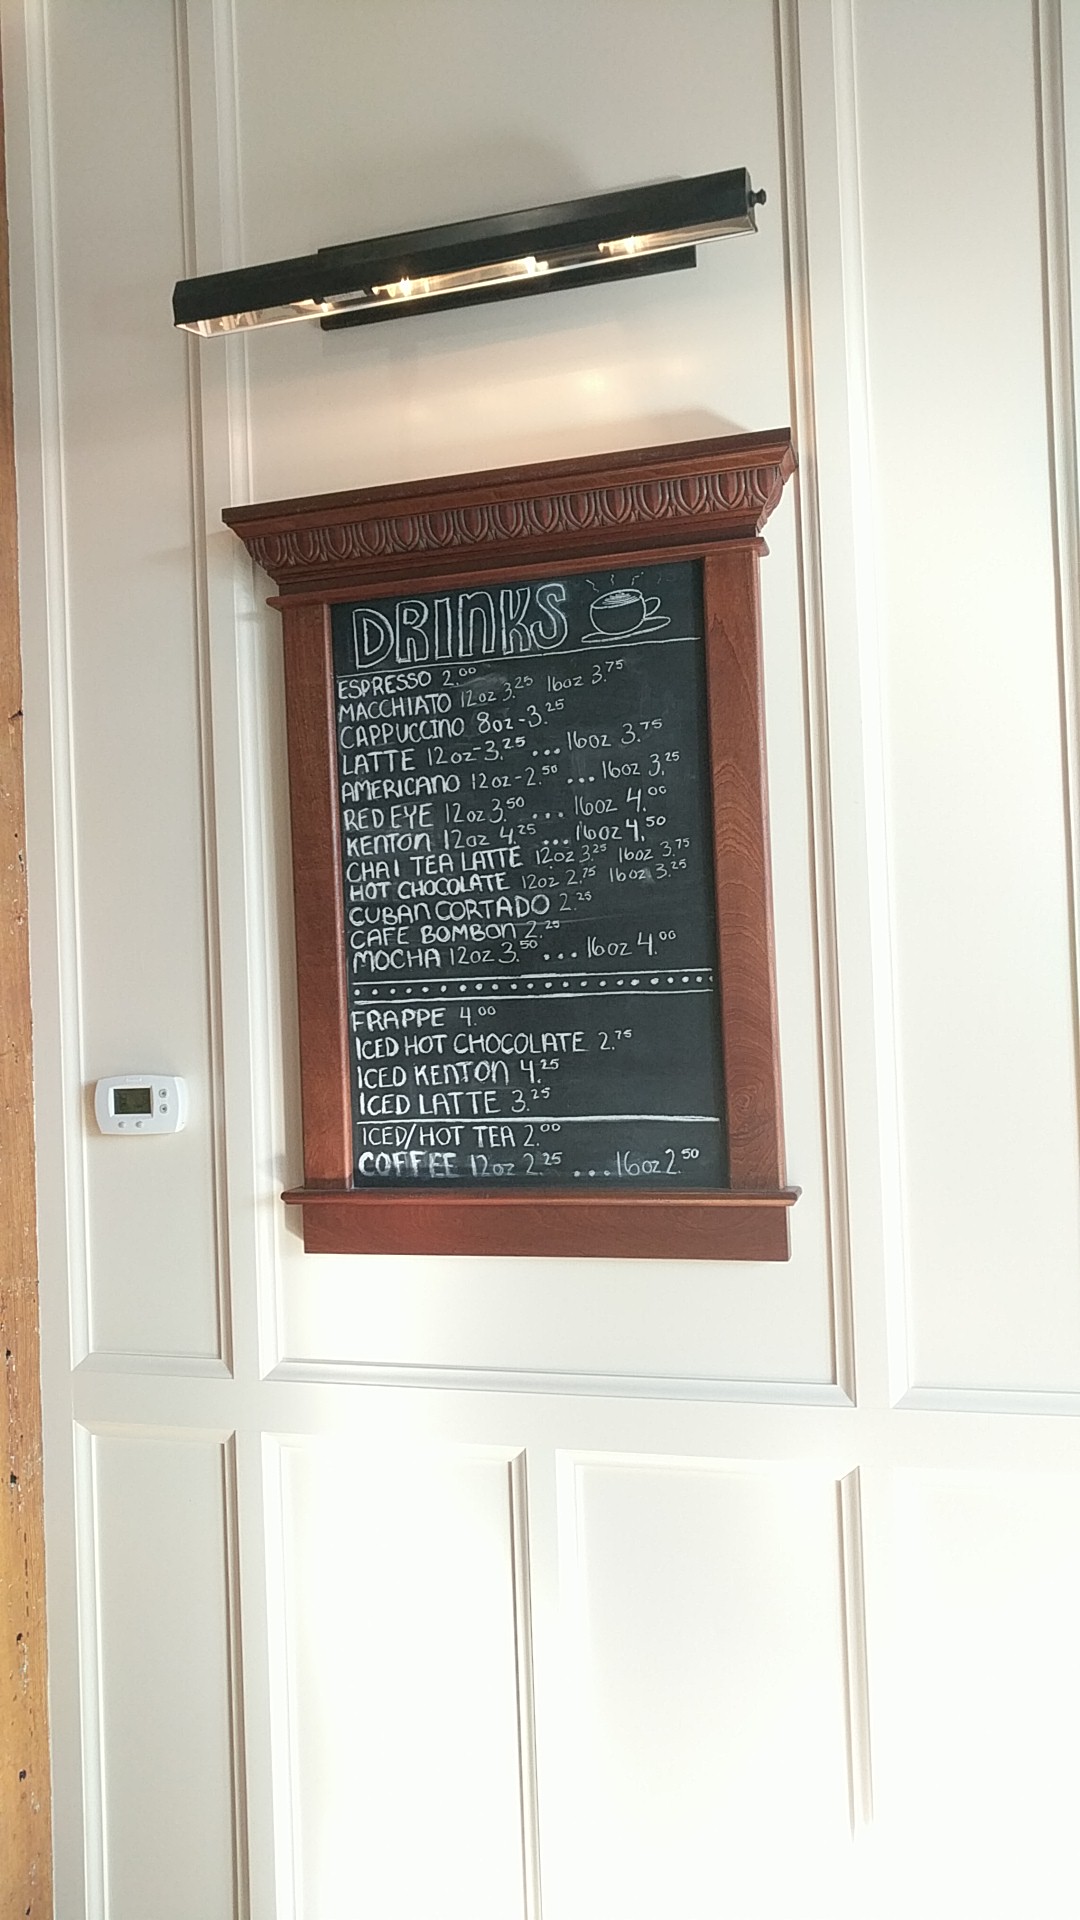 DRINKS
ESPRESSO 2.00
MACCHIATO 12oz 3.25 16oz 3.75
CAPPUCCINO 8oz-3.25
LATTE 12oz-3.25 ... 16oz 3.75
AMERICANO 12oz-2.50 ... 16oz 3.25
RED EYE 12oz 3.50 ... 16oz 4.00
KENTON 12oz 4.25 ... 16oz 4.50
CHAI TEA LATTE 12oz 3.25 16oz 3.75
HOT CHOCOLATE 12oz 2.75 16oz 3.25
CUBAN CORTADO 2.25
CAFE BOMBON 2.25
MOCHA 12oz 3.50 ... 16oz 4.00
FRAPPE 4.00
ICED HOT CHOCOLATE 2.75
ICED KENTON 4.25
ICED LATTE 3.25
ICED/HOT TEA 2.00
COFFEE 12oz 2.25 ... 16oz 2.50